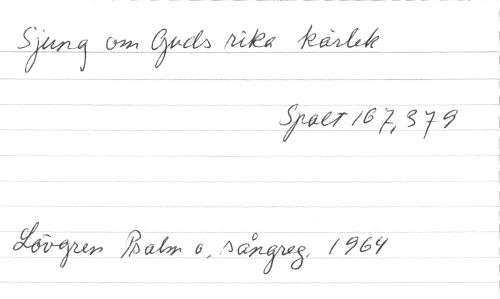 Sjung om Guds rika kärlek
Spalt 167, 379
Lövgren Psalm o. sångreg. 1964